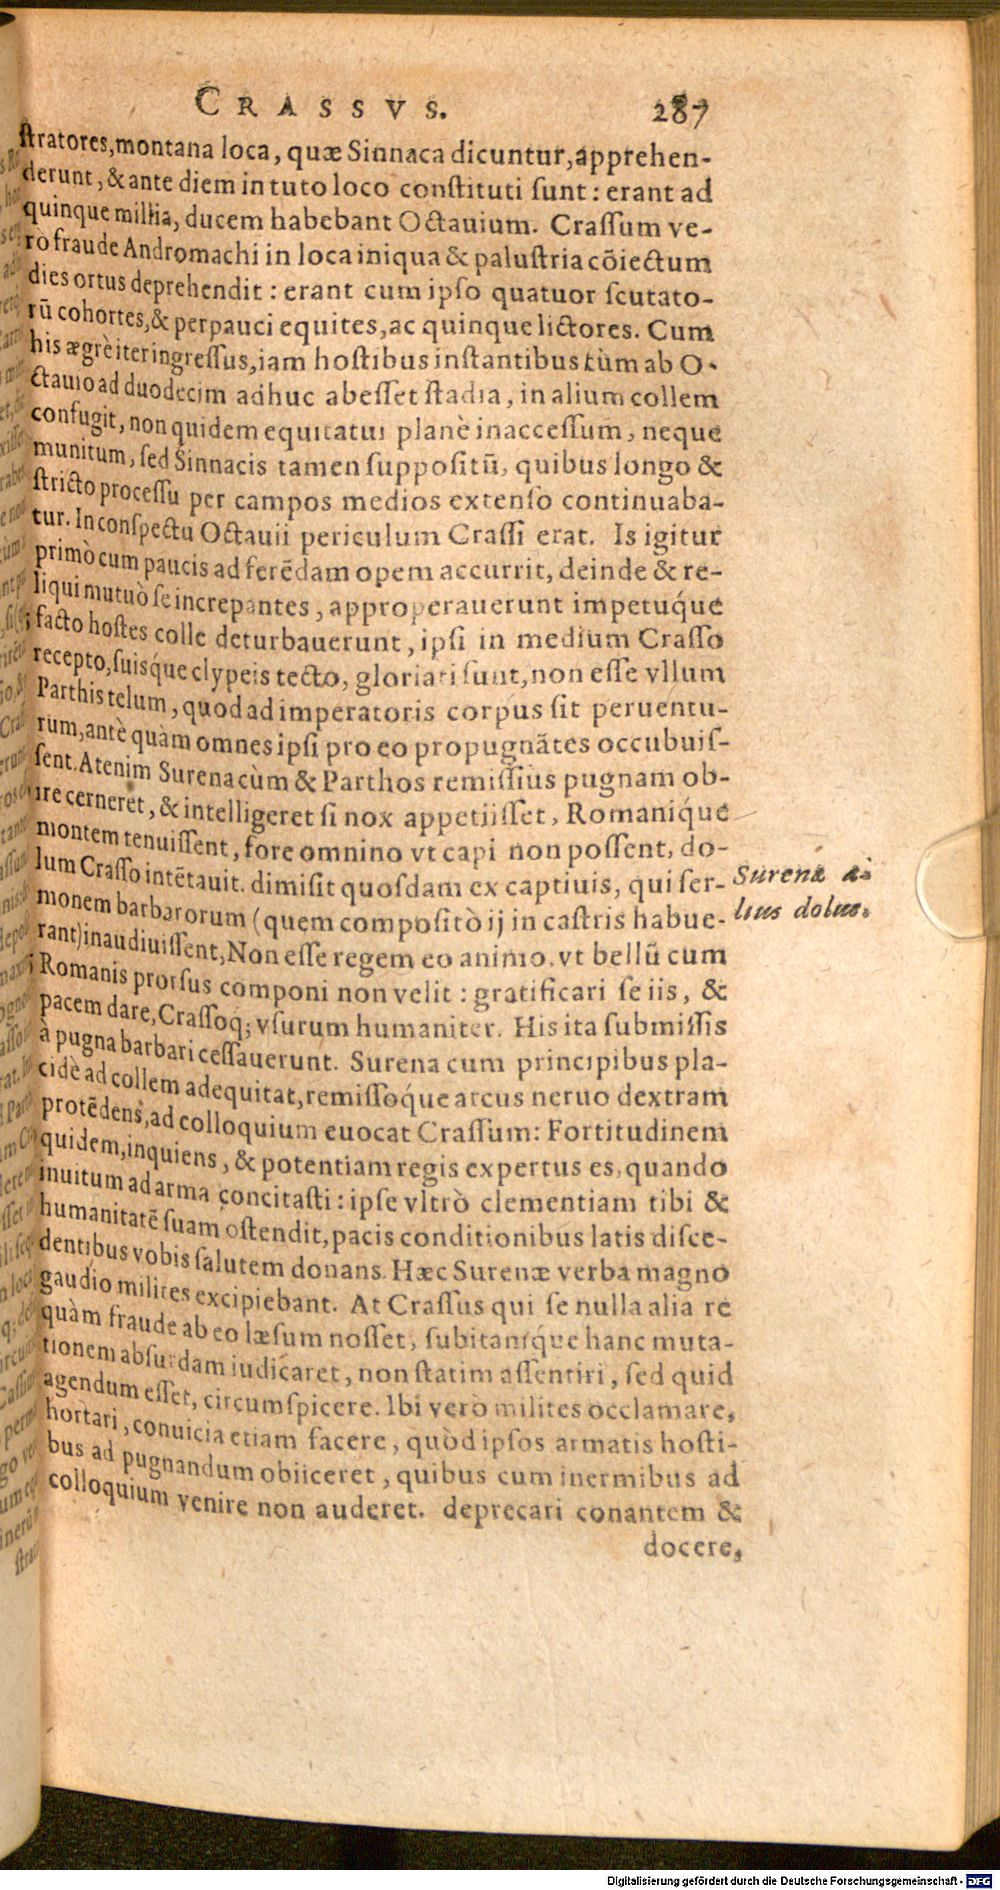 CRASSVS. 287
ſtratores, montana loca, quæ Sinnaca dicuntur, apprehen-
derunt, & ante diem in tuto loco conſtituti ſunt: erant ad
quinque millia, ducem habebant Octauium. Craſſum ve-
rò fraude Andromachi in loca iniqua & paluſtria cõiectum
dies ortus deprehendit: erant cum ipſo quatuor ſcutato-
rũ cohortes, & perpauci equites, ac quinque lictores. Cum
his ægrè iter ingreſſus, iam hoſtibus inſtantibus tùm ab O-
ctauio ad duodecim adhuc abeſſet ſtadia, in alium collem
confugit, non quidem equitatui planè inacceſſum, neque
munitum, ſed Sinnacis tamen ſuppoſitũ, quibus longo &
ſtricto proceſſu per campos medios extenſo continuaba-
tur. In conſpectu Octauii periculum Craſſi erat. Is igitur
primò cum paucis ad ferēdam opem accurrit, deinde & re-
liqui mutuò ſe increpantes, approperauerunt impetuq́ue
facto hoſtes colle deturbauerunt, ipſi in medium Craſſo
recepto, ſuisq́ue clypeis tecto, gloriati ſunt, non eſſe vllum
Parthis telum, quod ad imperatoris corpus ſit peruentu-
rum, antè quàm omnes ipſi pro eo propugnãtes occubuiſ-
ſent. Atenim Surena cùm & Parthos remiſſius pugnam ob-
ire cerneret, & intelligeret ſi nox appetiiſſet, Romaniq́ue
montem tenuiſſent, fore omnino vt capi non poſſent, do-
lum Craſſo intētauit. dimiſit quoſdam ex captiuis, qui ſer-
monem barbarorum (quem compoſitò ij in caſtris habue-
rant) inaudiuiſſent, Non eſſe regem eo animo, vt bellũ cum
Romanis prorſus componi non velit: gratificari ſe iis, &
pacem dare, Craſſoq; vſurum humaniter. His ita ſubmiſſis
à pugna barbari ceſſauerunt. Surena cum principibus pla-
cidè ad collem adequitat, remiſſoq́ue arcus neruo dextram
protēdens, ad colloquium euocat Craſſum: Fortitudinem
quidem, inquiens, & potentiam regis expertus es, quando
inuitum ad arma concitaſti: ipſe vltrò clementiam tibi &
humanitatē ſuam oſtendit, pacis conditionibus latis diſce-
dentibus vobis ſalutem donans. Hæc Surenæ verba magno
gaudio milites excipiebant. At Craſſus qui ſe nulla alia re
quàm fraude ab eo læſum noſſet, ſubitamq́ue hanc muta-
tionem abſurdam iudicaret, non ſtatim aſſentiri, ſed quid
agendum eſſet, circumſpicere. Ibi verò milites occlamare,
hortari, conuicia etiam facere, quòd ipſos armatis hoſti-
bus ad pugnandum obiiceret, quibus cum inermibus ad
colloquium venire non auderet. deprecari conantem &
docere,
Surenæ a-
lius dolus.
Digitalisierung gefördert durch die Deutsche Forschungsgemeinschaft - DFG